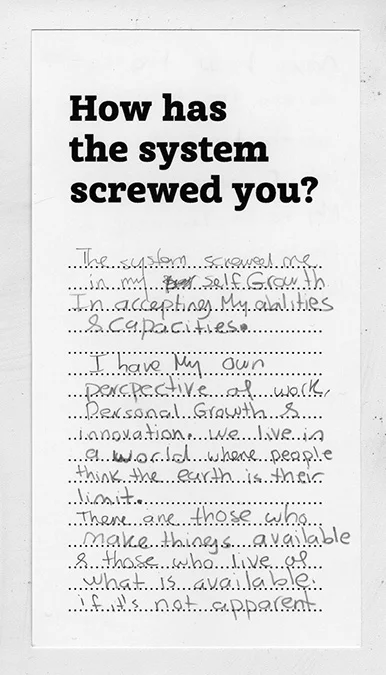 How has
the system
screwed you?
The system screwed me
in my self Growth
In accepting My abilities
& capacities.
I have My own
percpective of work,
Personal Growth &
innovation. We live in
a world where people
think the earth is their
limit.
There are those who
make things available
& those who live of
what is available.
if it's not apparent